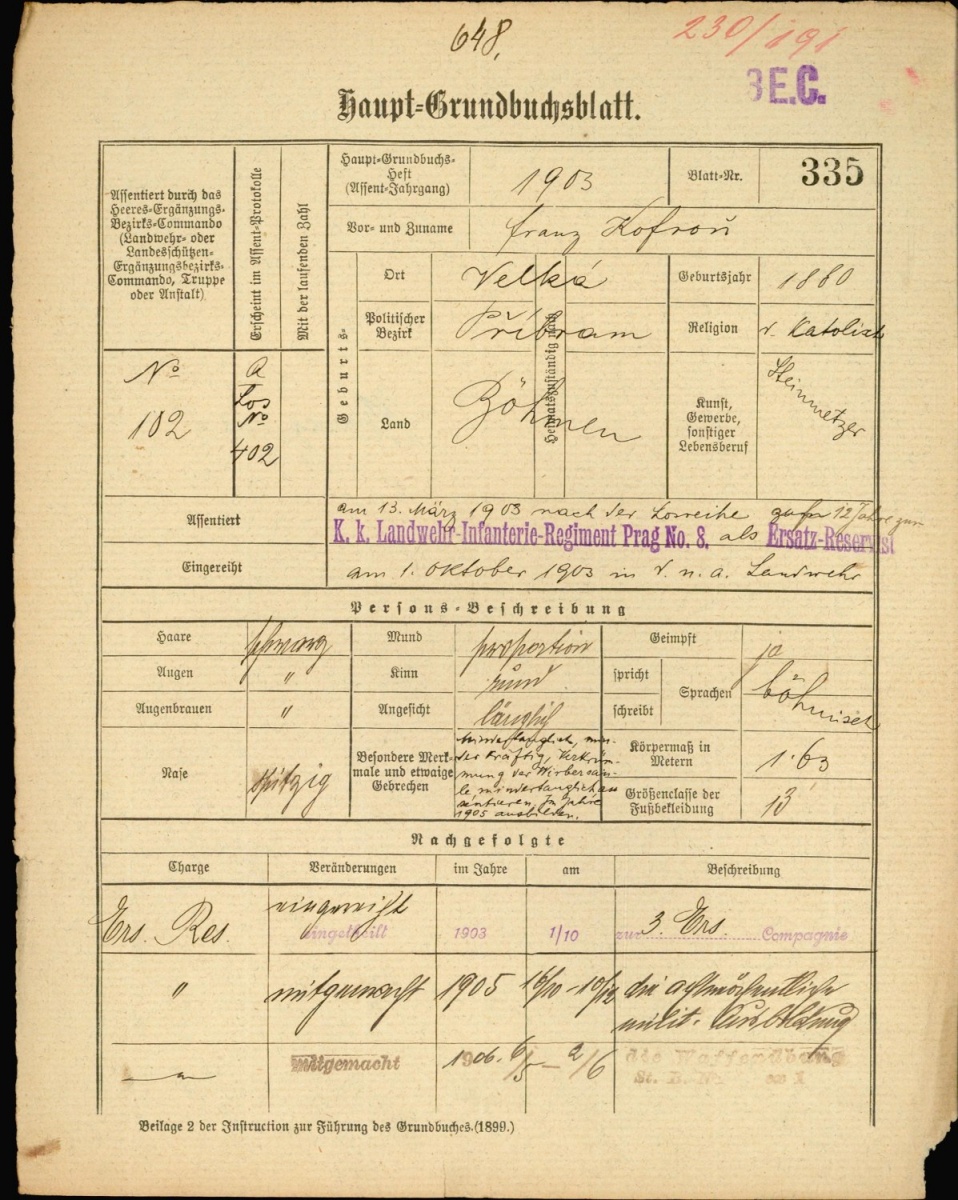 648.
230/191
E.C.
Haupt-Grundbuchsblatt.
Assentiert durch das
Heeres-Ergänzungs-
Bezirks-Commando
(Landwehr- oder
Landesschützen-
Ergänzungsbezirks-
Commando, Truppe
oder Anstalt)
Erscheint im Assent-Protokolle
Mit der laufenden Zahl
Haupt-Grundbuchs-
Heft
(Assent-Jahrgang)
1903
Blatt-Nr.
335
Vor- und Zuname
Franz Kofroň
Geburts-
Ort
Velká
Geburtsjahr
1880
Politischer
Bezirk
Příbram
Religion
r. Katolisch
Land
Böhmen
Kunst,
Gewerbe,
sonstiger
Lebensberuf
Steinmetzer
No
102
A
Los
No
402
Assentiert
am 13. März 1903 nach der Losreihe auf 12 Jahre zum
K. k. Landwehr-Infanterie-Regiment Prag No. 8. als Ersatz-Reservist
Eingereiht
am 1. Oktober 1903 in d. n. a. Landwehr
Persons-Beschreibung
Haare
schwarz
Mund
proportion
Geimpft
ja
Augen
"
Kinn
rund
spricht
schreibt
Sprachen
böhmisch
Augenbrauen
"
Angesicht
länglich
Nase
spitzig
Besondere Merk-
male und etwaige
Gebrechen
Mindertauglich, min-
der kräftig, Verkrüm-
mung der Wirbersäu-
le mindertauglich as
sentieren, Im Jahre
1905 ausbilden.
Körpermaß in
Metern
1·63
Größenclasse der
Fußbekleidung
13
Nachgefolgte
Charge
Veränderungen
im Jahre
am
Beschreibung
Ers. Res.
eingereiht
eingetheilt
1903
1/10
zur 3. Ers. Compagnie
"
mitgemacht
1905
16/10 - 10/12
die achtwöchentliche
milit. Ausbildung
mitgemacht
1906.
6/5 - 2/6
die Waffenübung
Beilage 2 der Instruction zur Führung des Grundbuches. (1899.)